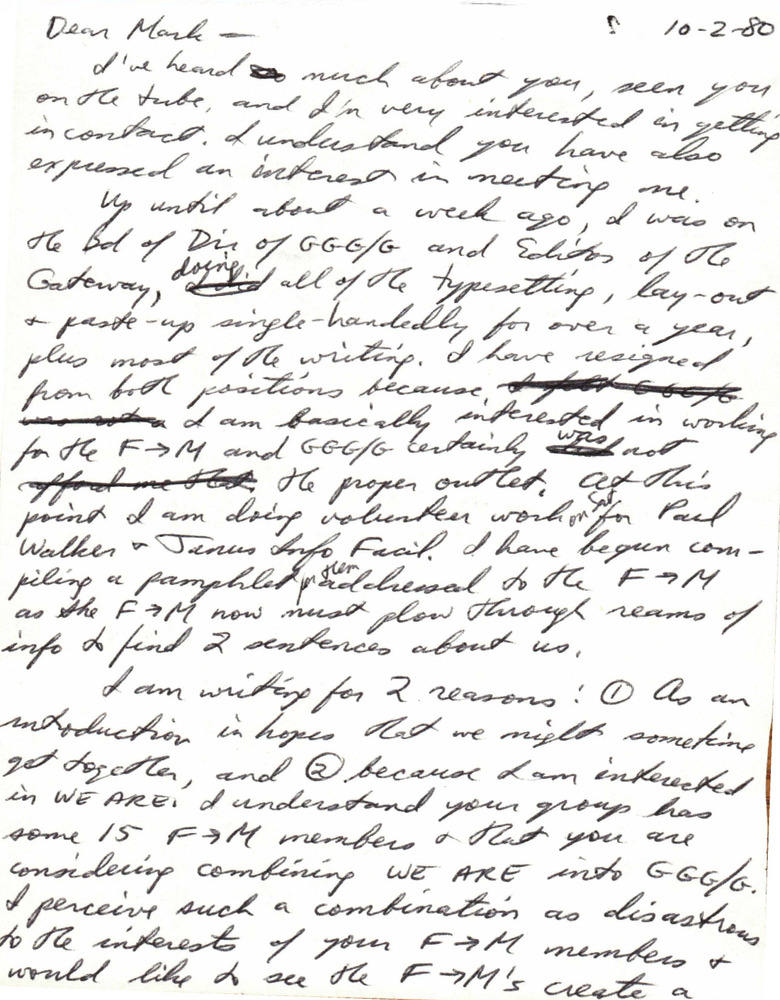 Dear Mark — 10-2-80
I've heard so much about you, seen you
on the tube, and I'm very interested in getting
in contact. I understand you have also
expressed an interest in meeting me.
Up until about a week ago, I was on
the bd of Dir of GGG/G and Editor of the
Gateway, doing all of the typesetting, lay-out
+ paste-up single-handedly for over a year,
plus most of the writing. I have resigned
from both positions because
I am basically interested in working
for the F→M and GGG/G certainly was not
the proper outlet. At this
point I am doing volunteer work for Paul
Walker + Janus Info Facil. I have begun com-
piling a pamphlet for them addressed to the F→M
as the F→M now must plow through reams of
info to find 2 sentences about us.
I am writing for 2 reasons: ① As an
introduction in hopes that we might sometime
get together, and ② because I am interested
in WE ARE. I understand your group has
some 15 F→M members + that you are
considering combining WE ARE into GGG/G.
I perceive such a combination as disastrous
to the interests of your F→M members +
would like to see the F→M's create a